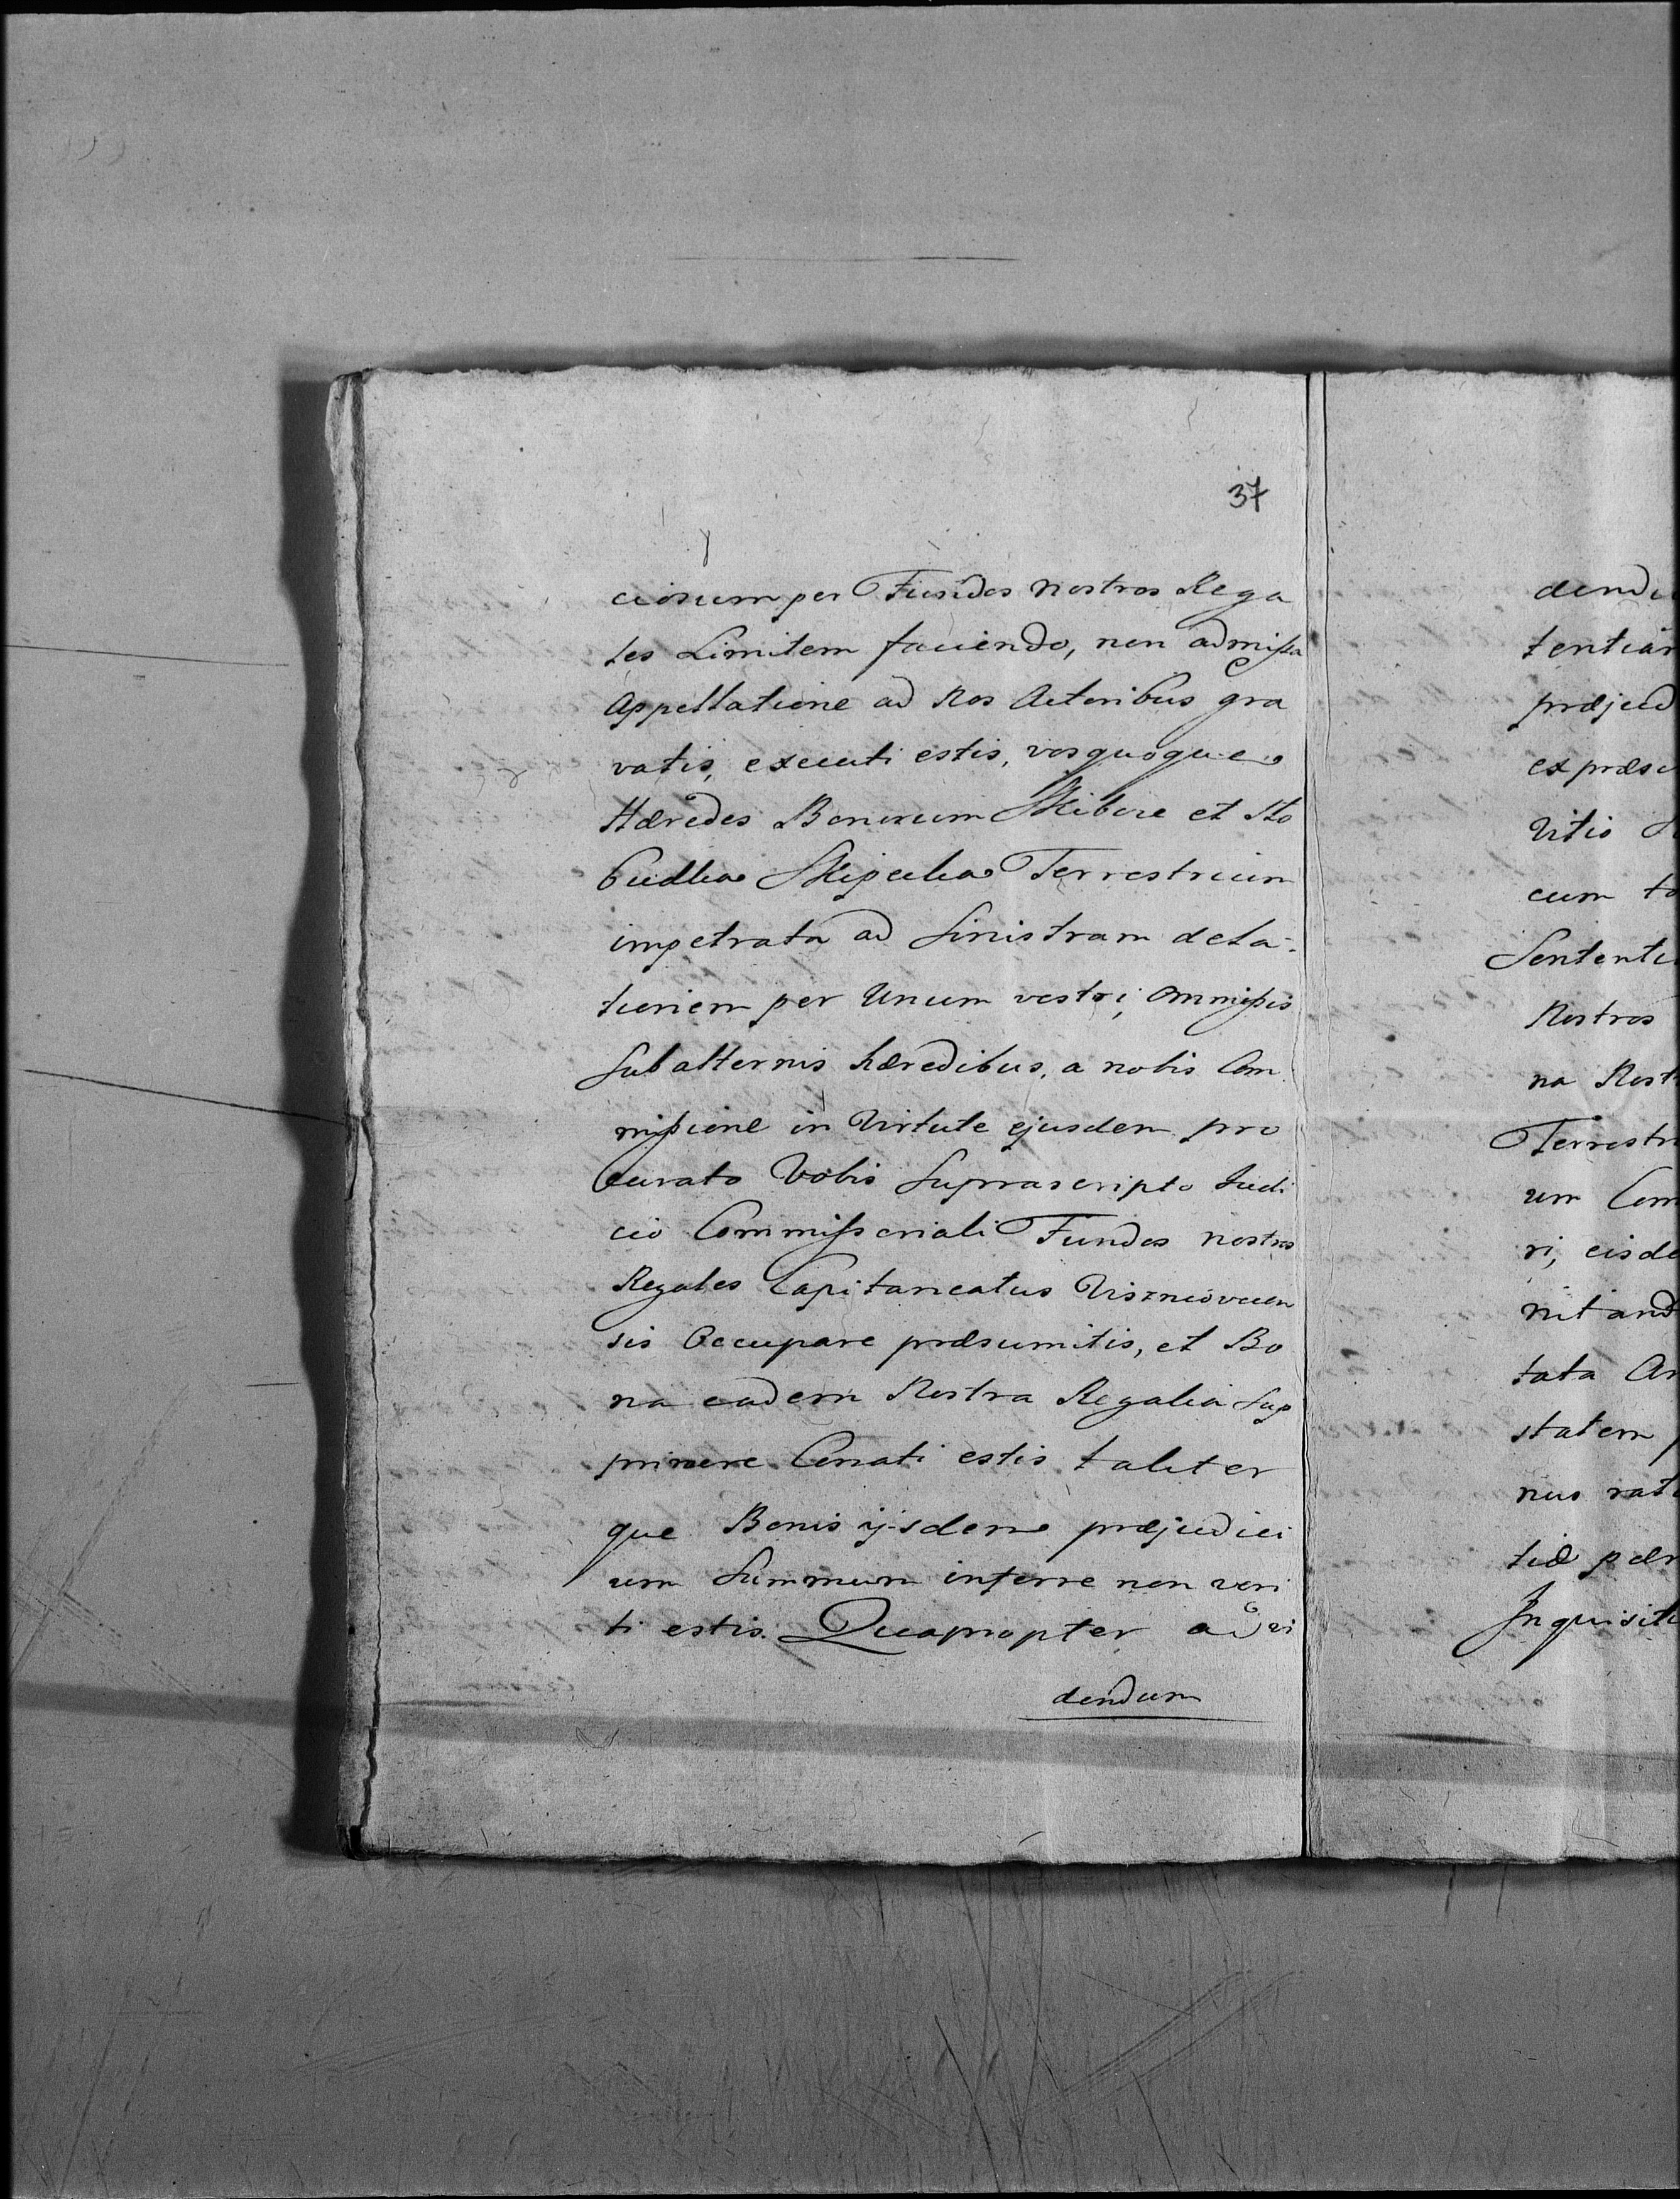 37
cionum per Fundos nostros Rega
les Limitem faciendo, non admissa
Appellatione ad Nos Actoribus gra
vatis, executi estis, vosquoque
Hæredes Bonorum Skibice et Slo
budka Skipecka Terrestrium
impetrata ad Sinistram dela-
tionem per Unum vestri, Ommissis
Subalternis hæredibus, a nobis Com
missione in Virtute ejusdem pro
curato Vobis Suprascripto Judi
cio Commissoriali Fundos nostros
Regales Capitaneatus Viszniovien
sis Occupare præsumitis, et Bo
na eadem Nostra Regalia Sup
primere Conati estis taliter
que Bonis ijsdem præjudici
um Summum inferre non veri
ti estis. Quapropter ad vi
dendum
dend
tentiam
præjud
ex præs
Vitio
cum to
Sententi
Nostros
na Nost
Terrestr
um Com
ri, eisde
nitand
tata
statem
nus rat
tiæ
Inquisiti